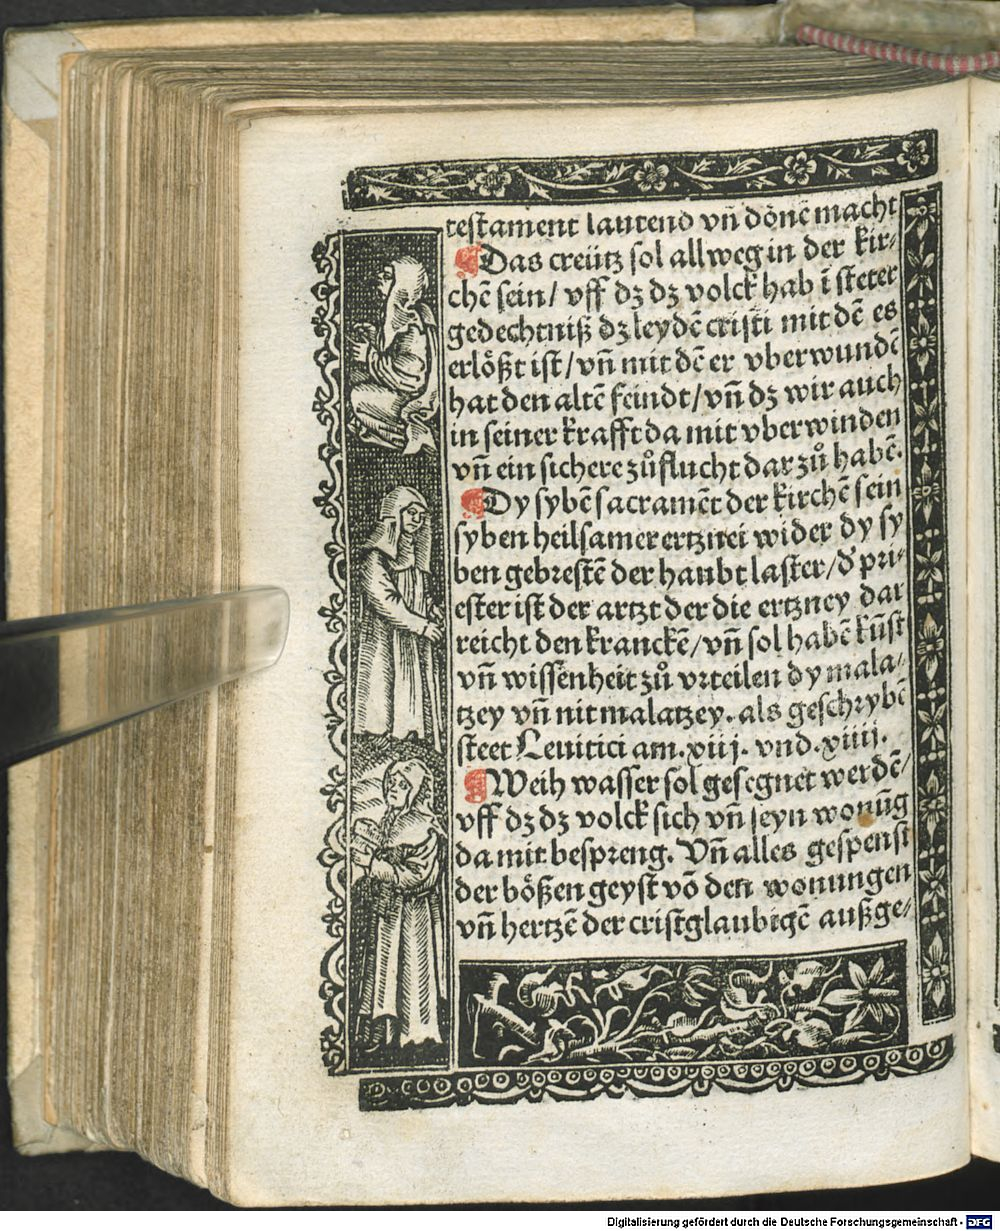 testament lautend vn̄ dönē macht
¶ Das creütz sol allweg in der kir⸗
chē sein/ vff dz dz volck hab ī steter
gedechtniß dz leydē cristi mit dē es
erlößt ist/ vn̄ mit dē er vberwundē
hat den altē feindt/ vn̄ dz wir auch
in seiner krafft da mit vberwinden
vn̄ ein sichere zůflucht dar zů habē.
¶ Dy sybē sacramēt der kirchē sein
syben heilsamer ertznei wider dy sy
ben gebrestē der haubt laster/ d' pri⸗
ester ist der artzt der die ertzney dar
reicht den kranckē/ vn̄ sol habē kūst
vn̄ wissenheit zů vrteilen dy mala⸗
tzey vn̄ nit malatzey. als geschrybē
steet Leuitici am .xiij. vnd .xiiij.
¶ Weih wasser sol gesegnet werdē/
vff dz dz volck sich vn̄ seyn wonūg
da mit bespreng. Vn̄ alles gespenst
der bößen geyst vō den wonungen
vn̄ hertzē der cristglaubigē außge⸗
Digitalisierung gefördert durch die Deutsche Forschungsgemeinschaft - DFG